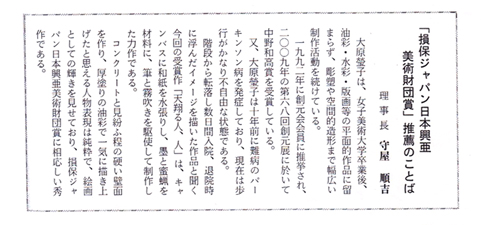 「損保ジャパン日本興亜
美術財団賞」推薦のことば
理事長 守屋 順吉
大原螢子は、女子美術大学卒業後、
油彩・水彩・版画等の平面的作品に留
まらず、彫塑や空間的造形まで幅広い
制作活動を続けている。
一九九二年に創元会会員に推挙され、
二〇〇九年の第六八創元展に於いて
中野和高賞を受賞している。
又、大原螢子は十年前に難病のパー
キンソン病を発症しており、現在は歩
行がかなり不自由な状態である。
階段から転落し数日間入院、退院時
に浮んだイメージを描いた作品と聞く
今回の受賞作「天翔る人、人」は、キャ
ンバスに和紙を水張りし、墨と蜜蝋を
材料に、筆と霧吹きを駆使して制作し
た力作である。
コンクリートと見紛ふ程の硬い壁面
を作り、厚塗りの油彩で一気に描き上
げたと思える人物表現は純粋で、絵画
としての輝きを見せており、損保ジャ
パン日本興亜美術財団賞に相応しい秀
作である。